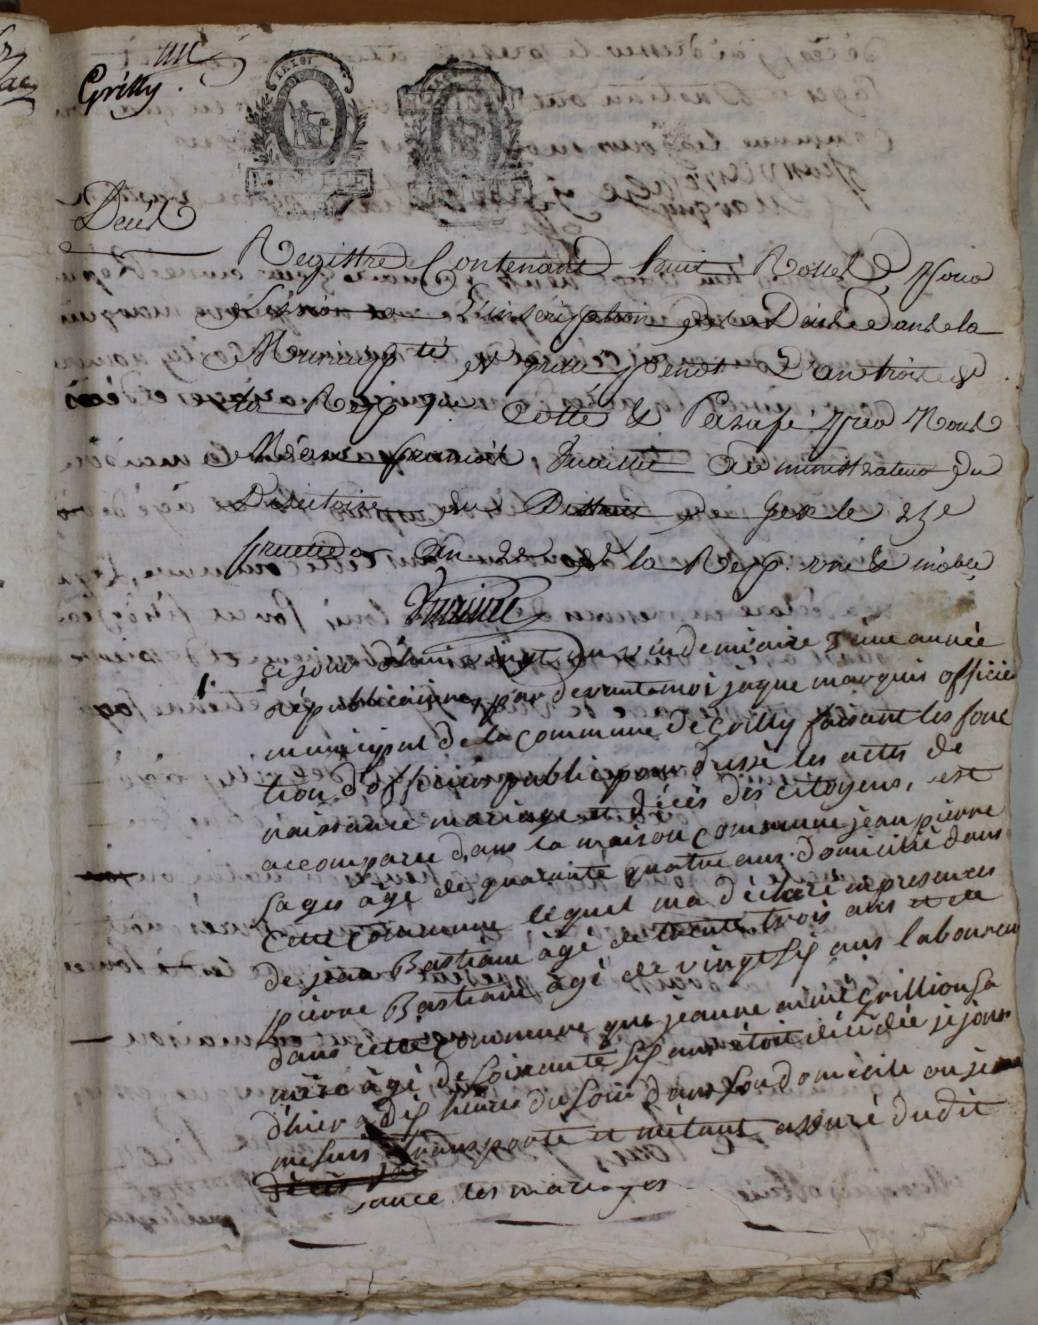 Grilly.
Décès
Registre Contenant huit Rolles pour
L'inscription des Décès dans la
Municipalité de Grilly pendt L'an trois de
la Rep. f. Cotté & Paraphé par Nous
françois administrateur du
Directoire du District de Gex le 25e
fructidor an 2e de la Rep. une & indble
1. ce jourdhui vingt un vindemiaire année
républicainne, par devant moi jaque marquis officier
municipal de la commune de Grilly faisant les fonc
tion d'officier public pour dressé les actes de
naissance mariage et décès des citoyens, est
accomparu dans la maison commune jean pierre
Lages âgé de quarante quatre ans domicilié dans
cette commune lequel ma déclaré en presences
de jean Bastiant âgé de trente trois ans et de
pierre Bastiant âgé de vingt six ans laboureur
dans cette commune que jeanne aimé Grillion sa
mère âgé de soixante six ans étoit décédée je jour
d'hier a dix heures du soir dans son domicile ou je
me suis transporté et m'étant assuré dudit
décès
sance les mariages